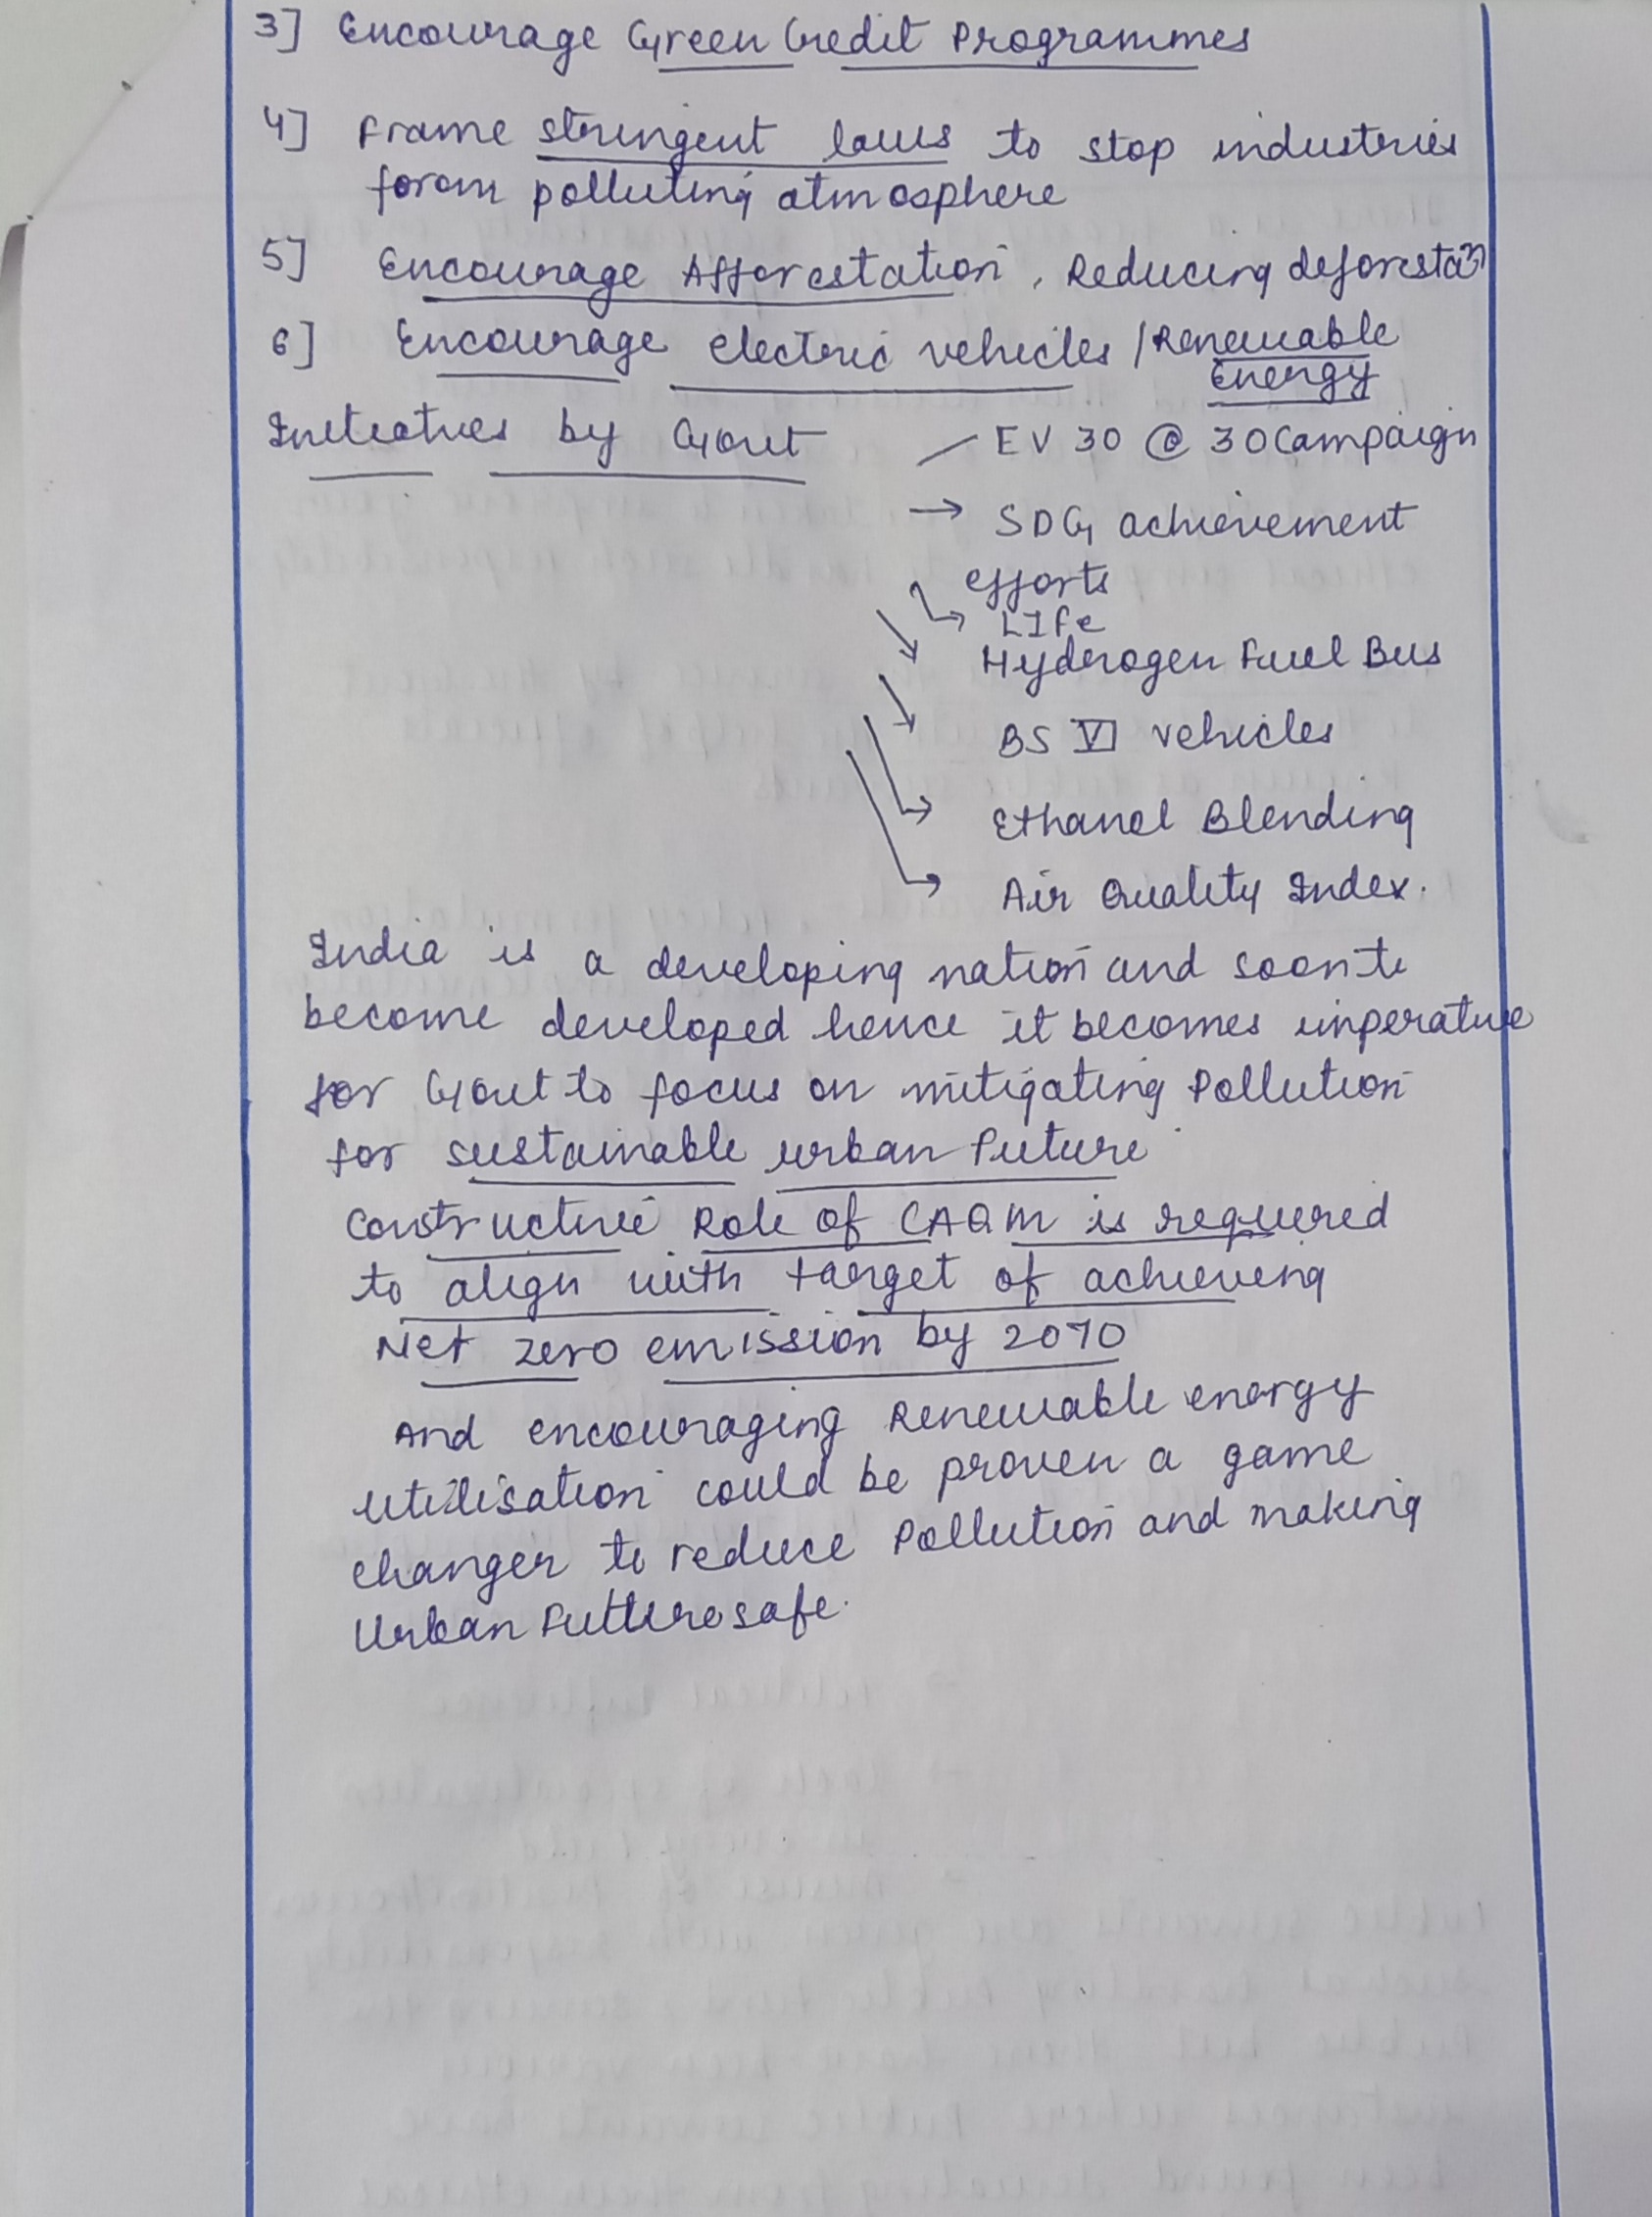 3] Encourage Green Credit Programmes
4] Frame stringent laws to stop industeries
forom polluting atmosphere
5] Encourage Afforestation, Reducing deforestan
6] Encourage electric vehicles / Renewable
Energy
Initiatives by Govt — EV 30 @ 30 Campaign
→ SDG achievement
efforts
↳ LIFe
→ Hyderogen Fuel Bus
→ BS VI vehicles
→ Ethanel Blending
→ Air Quality Index.
India is a developing nation and soon to
become developed hence it becomes imperative
for Govt to focus on mitigating Pollution
for sustainable urban Future
Constructive Role of CAQM is required
to align with target of achieving
Net zero emission by 2070
And encouraging Renewable energy
utilisation could be proven a game
changer to reduce Pollution and making
Urban Future safe.